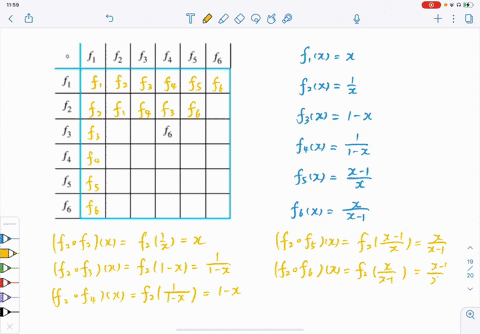 11:59
∘ f₁ f₂ f₃ f₄ f₅ f₆
f₁ f₁ f₂ f₃ f₄ f₅ f₆
f₂ f₂ f₁ f₄ f₃ f₆
f₃ f₃ f₆
f₄ f₄
f₅ f₅
f₆ f₆
f₁(x) = x
f₂(x) = 1/x
f₃(x) = 1-x
f₄(x) = 1/(1-x)
f₅(x) = (x-1)/x
f₆(x) = x/(x-1)
(f₂∘f₂)(x) = f₂(1/x) = x
(f₂∘f₃)(x) = f₂(1-x) = 1/(1-x)
(f₂∘f₄)(x) = f₂(1/(1-x)) = 1-x
(f₂∘f₅)(x) = f₂((x-1)/x) = x/(x-1)
(f₂∘f₆)(x) = f₂(x/(x-1)) = (x-1)/
19
20